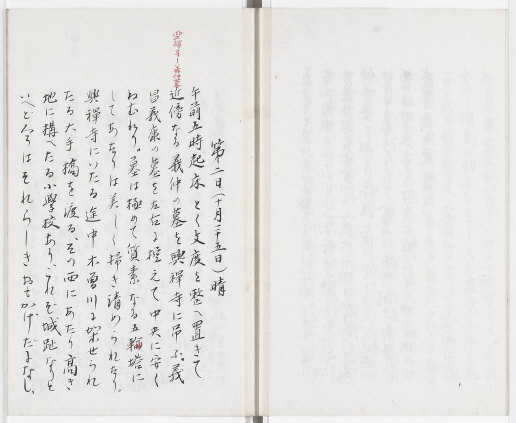 第二日(十月二十五日)晴
午前五時起床とく支度を整へ置きて
近傍なる義仲の墓を興禅寺に弔ふ。義
昌義康の墓を左右に控えて中央に安く
ねむれり。墓は極めて質素なる五輪塔に
してあたりは美しく掃き清められたり。
興禅寺にいたる途中木曽川に架せられ
たる大手橋を渡る。その西にあたり高き
地に構へたる小学校あり、これぞ城趾なりと
いへど今はそれらしきおもかげだになし。